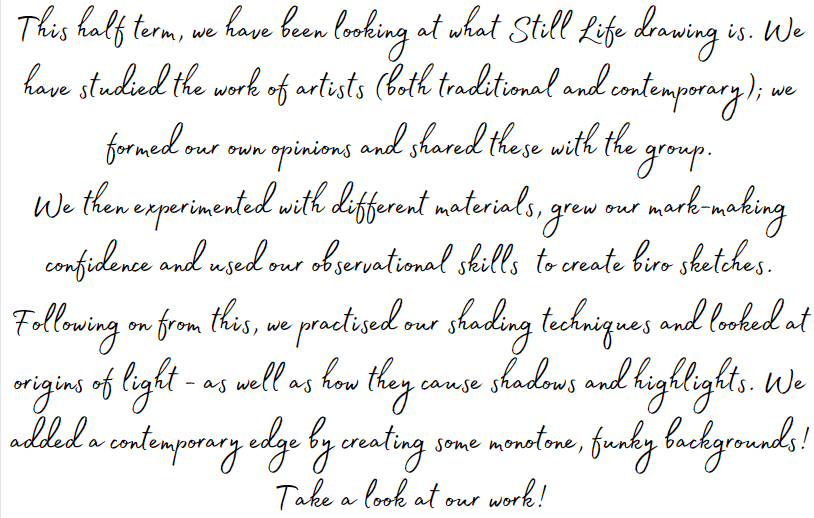 This half term, we have been looking at what Still Life drawing is. We
have studied the work of artists (both traditional and contemporary); we
formed our own opinions and shared these with the group.
We then experimented with different materials, grew our mark-making
confidence and used our observational skills to create biro sketches.
Following on from this, we practised our shading techniques and looked at
origins of light - as well as how they cause shadows and highlights. We
added a contemporary edge by creating some monotone, funky backgrounds!
Take a look at our work!